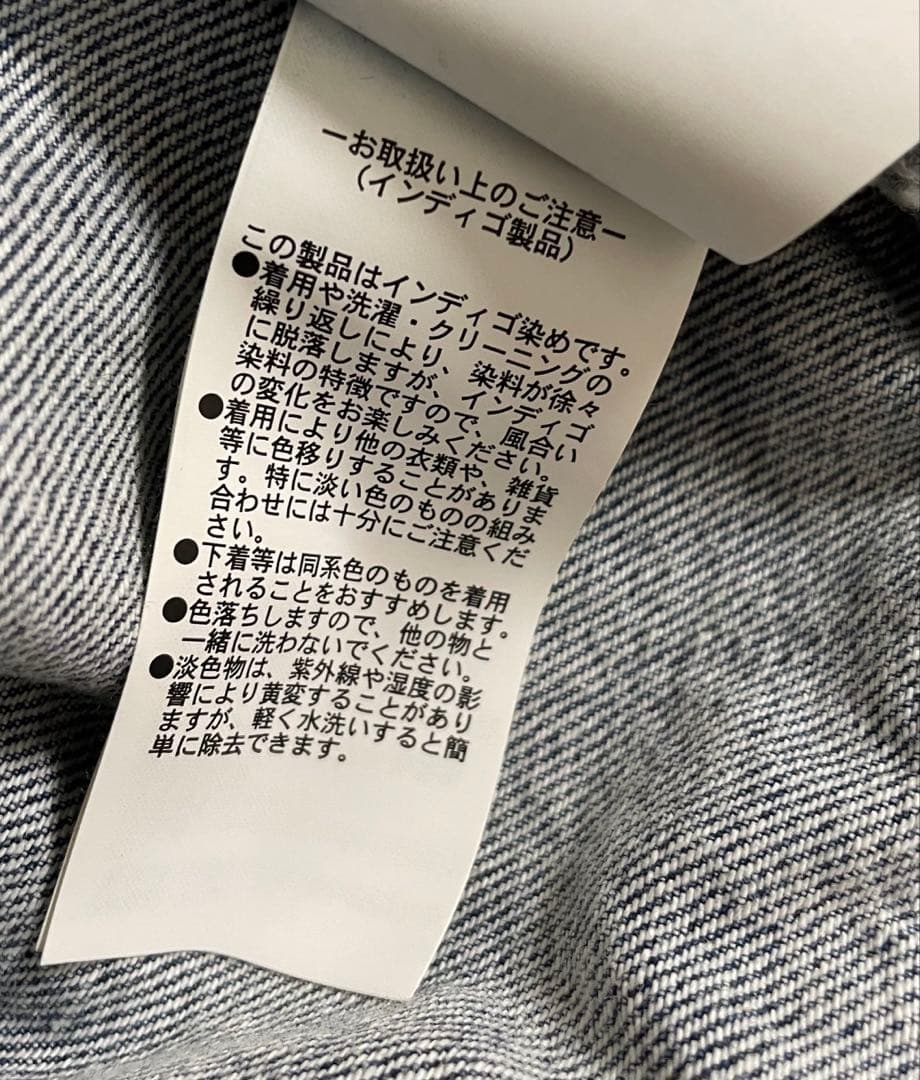 ーお取扱い上のご注意ー
（インディゴ製品）
この製品はインディゴ染めです。
●着用や洗濯・クリーニングの
繰り返しにより、染料が徐々
に脱落しますが、インディゴ
染料の特徴ですので、風合い
の変化をお楽しみください。
●着用により他の衣類や、雑貨
等に色移りすることがありま
す。特に淡い色のものの組み
合わせには十分にご注意くだ
さい。
●下着等は同系色のものを着用
されることをおすすめします。
●色落ちしますので、他の物と
一緒に洗わないでください。
●淡色物は、紫外線や湿度の影
響により黄変することがあり
ますが、軽く水洗いすると簡
単に除去できます。